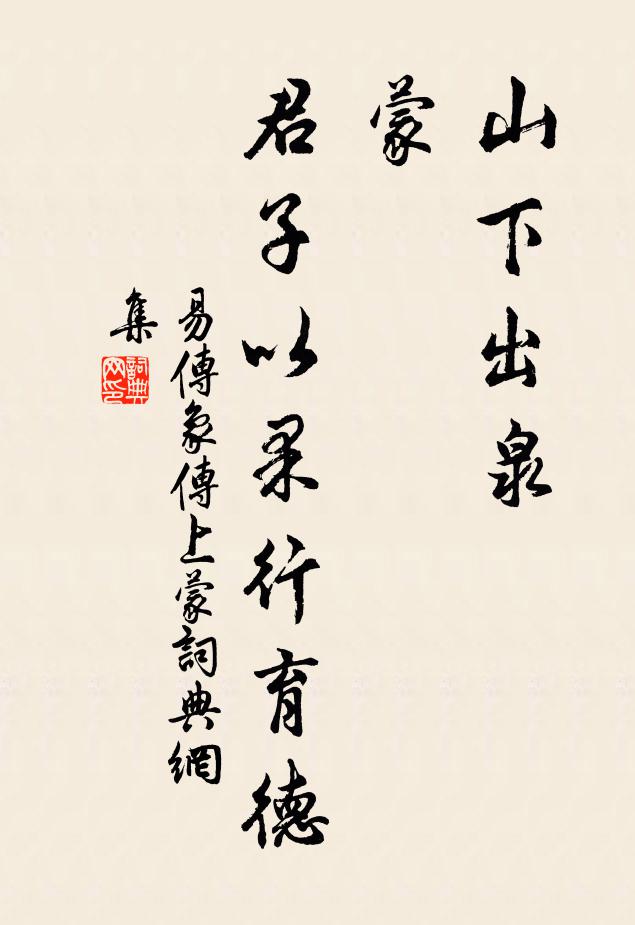 山下出泉
蒙
君子以果行育德
易傳象傳上蒙詞典網
集
詞典
网印